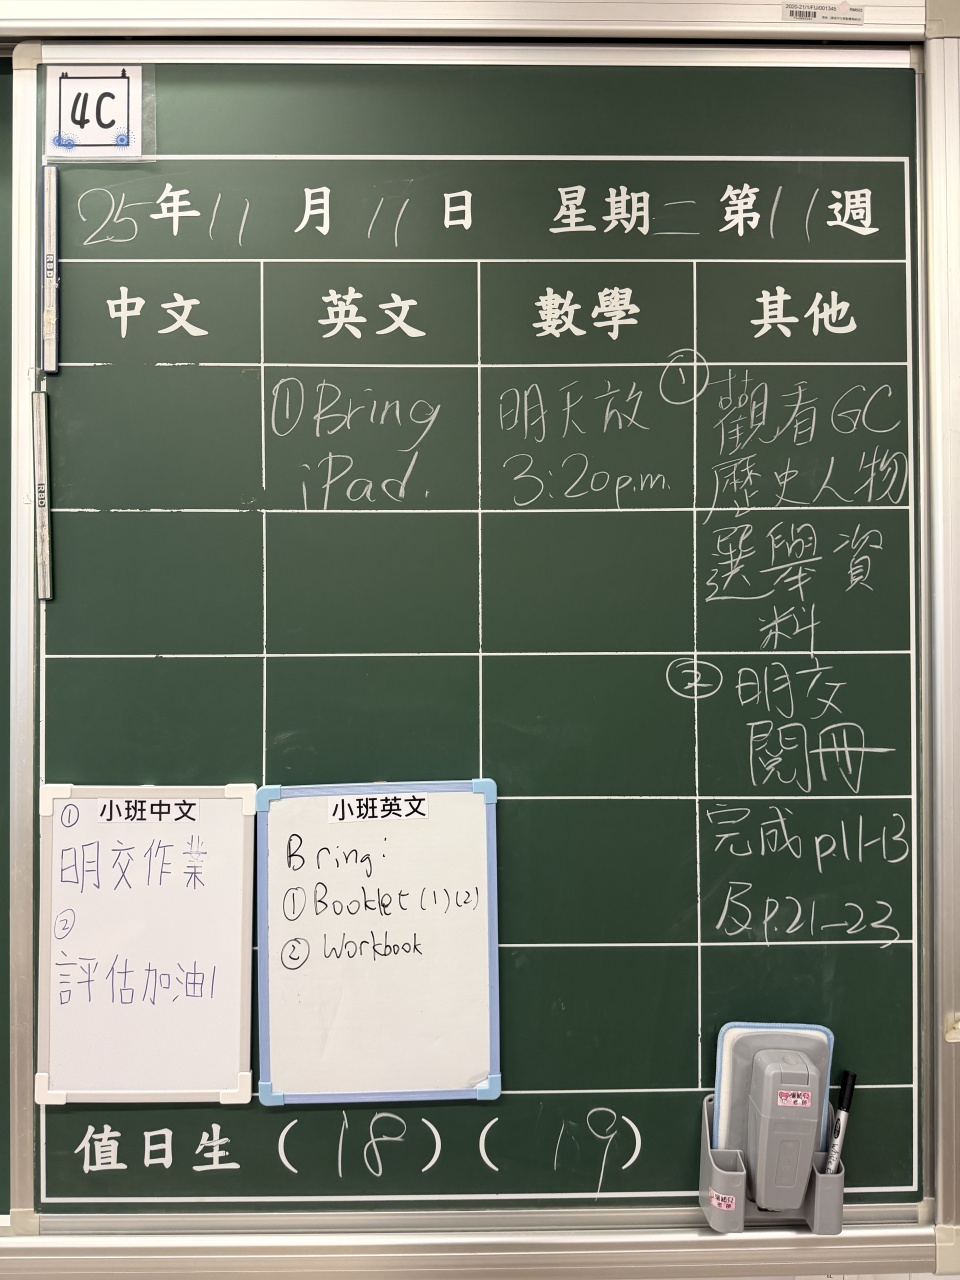 4C
25年11月11日 星期二 第11週
中文 英文 數學 其他
①Bring
iPad.
明天放
3:20p.m.
① 觀看GC
歷史人物
選舉資
料
② 明交
閱冊
完成p.11-13
及p.21-23
① 小班中文
明交作業
②
評估加油!
小班英文
Bring:
①Booklet(1)(2)
② Workbook
值日生(18)(19)